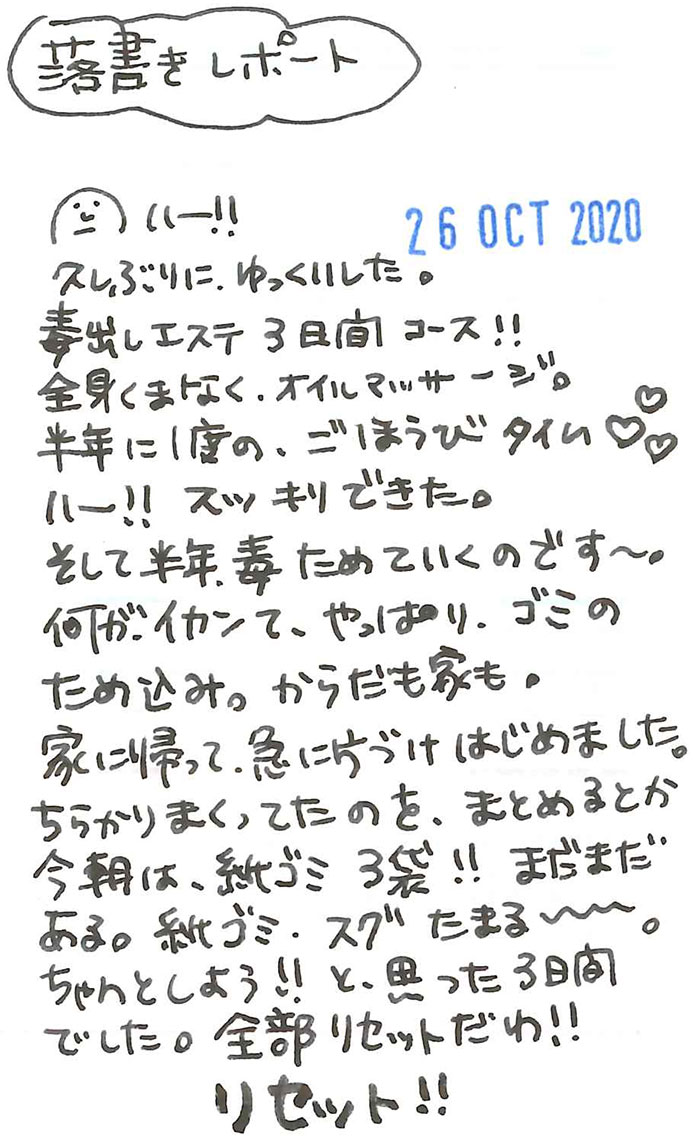 落書きレポート
ハー!!
26 OCT 2020
久しぶりに、ゆっくりした。
毒出しエステ 3日間 コース!!
全身くまなく、オイルマッサージ。
半年に1度の、ごほうび タイム♡♡♡
ハー!! スッキリできた。
そして半年、毒ためていくのです〜。
何が、イカンて、やっぱり、ゴミの
ため込み。からだも家も。
家に帰って、急に片づけはじめました。
ちらかりまくってたのを、まとめるとか
今朝は、紙ゴミ 3袋!! まだまだ
ある。紙ゴミ、スグ たまる〜〜〜。
ちゃんとしよう!! と、思った3日間
でした。全部リセットだわ!!
リセット!!